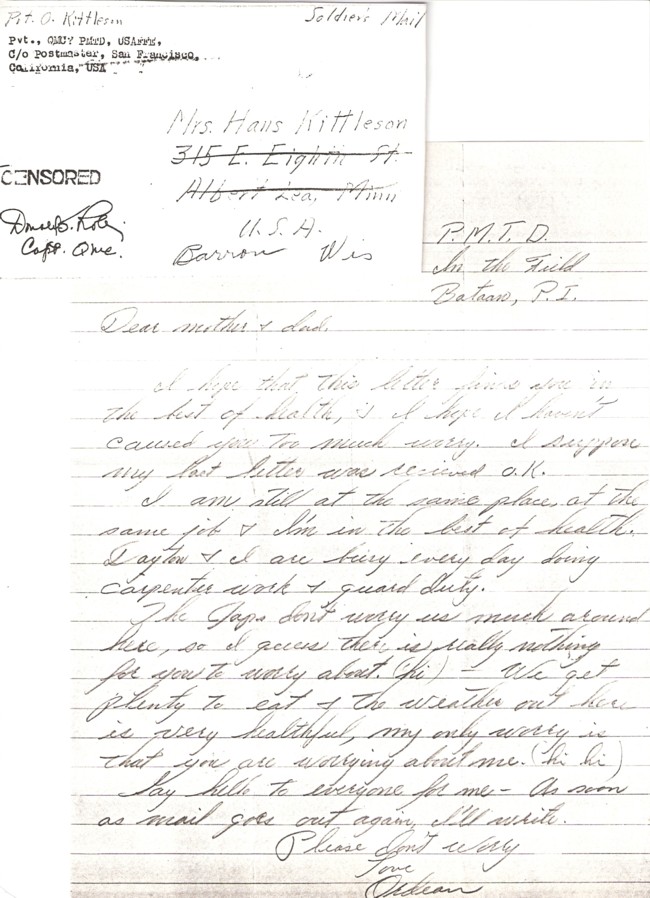 Pvt. O. Kittleson
Soldier's Mail
Pvt., QMC, PMTD, USAFFE,
C/o Postmaster, San Francisco,
California, USA
Mrs. Hans Kittleson
315 E. Eighth St.
Albert Lea, Minn
U.S.A.
Barron Wis
CENSORED
Capt. QMC.
P.M.T.D.
In the Field
Bataan, P.I.
Dear mother & dad,
I hope that this letter finds you in
the best of health, & I hope I haven't
caused you too much worry. I suppose
my last letter was recieved O.K.
I am still at the same place, at the
same job & I'm in the best of health.
Dayton & I are busy every day doing
carpenter work & guard duty.
The Japs don't worry us much around
here, so I guess there is really nothing
for you to worry about. (hi) - We get
plenty to eat & the weather out here
is very healthful, my only worry is
that you are worrying about me. (hi hi)
Say hello to everyone for me - As soon
as mail goes out again, I'll write.
Please don't worry
Love
Ordean